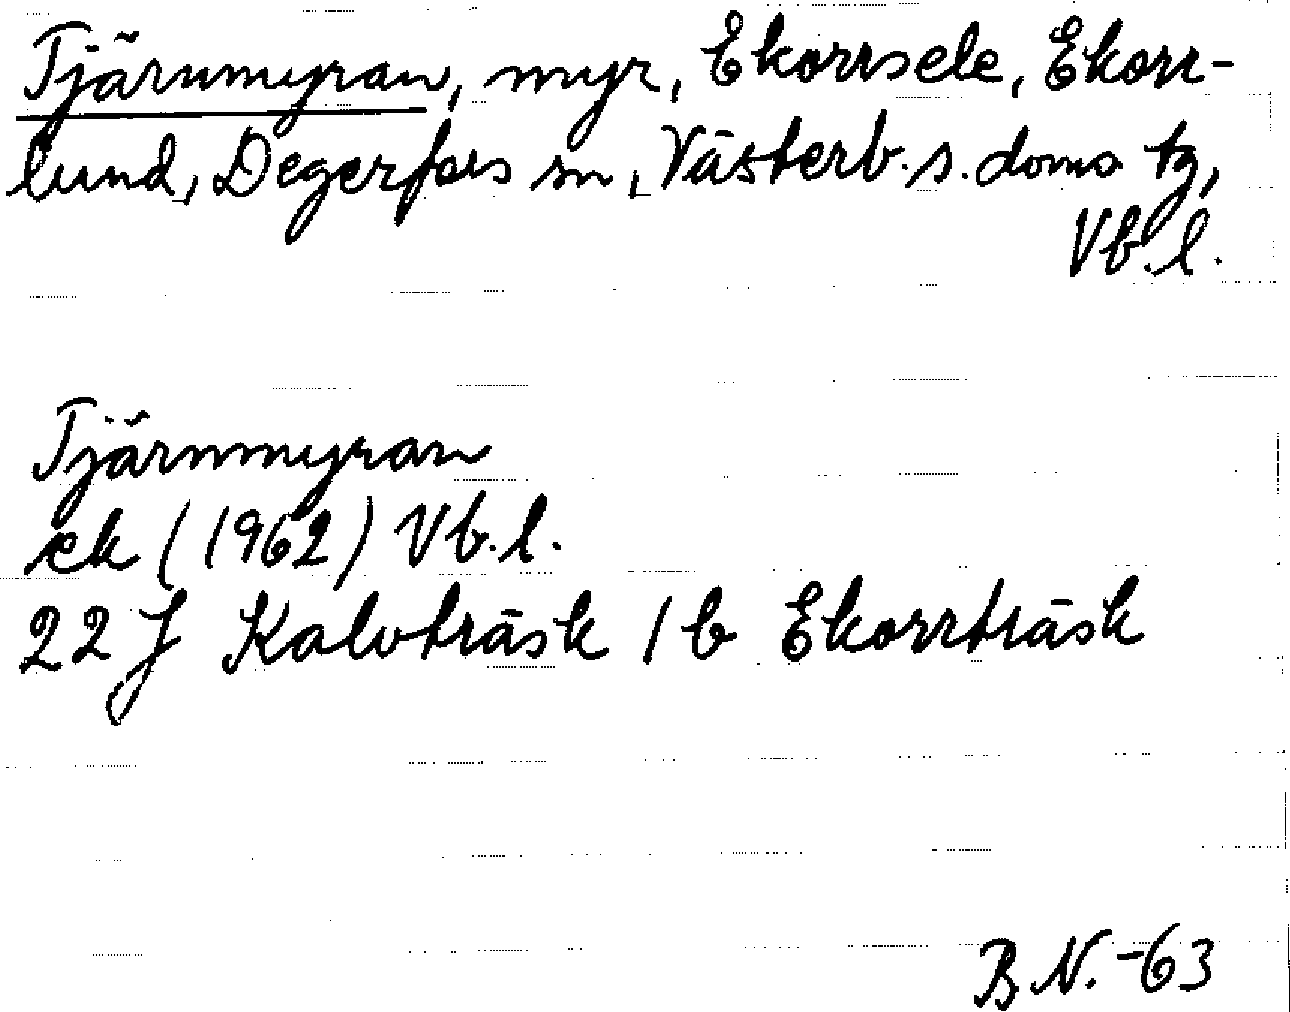 Tjärnmyran, myr, Ekorrsele, Ekorr-
lund, Degerfors sn, Västerb. s. doms tg,
Vb. l.
Tjärnmyran
ek (1962) Vb. l.
22 J Kalvträsk 1 b Ekorrträsk
B.N. -63